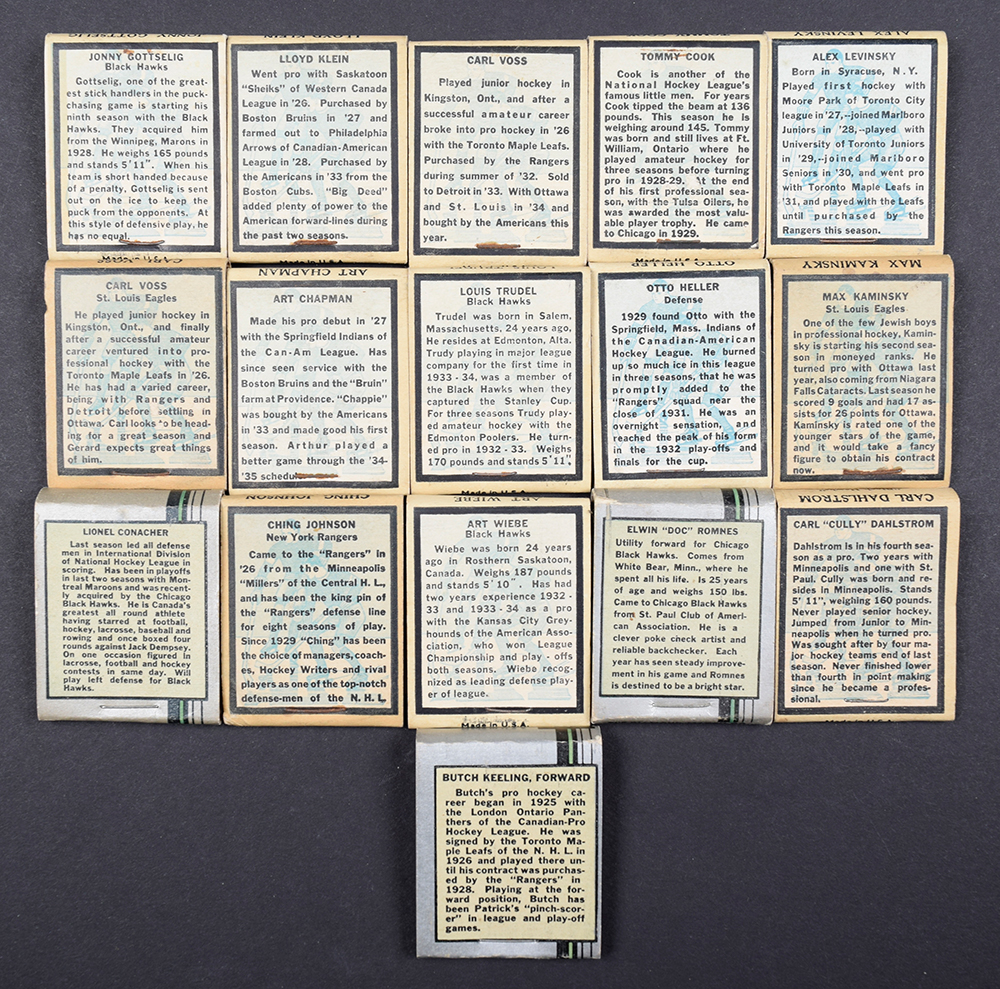 JONNY GOTTSELIG
JONNY GOTTSELIG
Black Hawks
Gottselig, one of the great-
est stick handlers in the puck-
chasing game is starting his
ninth season with the Black
Hawks. They acquired him
from the Winnipeg, Marons in
1928. He weighs 165 pounds
and stands 5'11". When his
team is short handed because
of a penalty, Gottselig is sent
out on the ice to keep the
puck from the opponents. At
this style of defensive play, he
has no equal.
LLOYD KLEIN
LLOYD KLEIN
Went pro with Saskatoon
"Sheiks" of Western Canada
League in '26. Purchased by
Boston Bruins in '27 and
farmed out to Philadelphia
Arrows of Canadian-American
League in '28. Purchased by
the Americans in '33 from the
Boston Cubs. "Big Deed"
added plenty of power to the
American forward-lines during
the past two seasons.
Made in U.S.A.
CARL VOSS
Played junior hockey in
Kingston, Ont., and after a
successful amateur career
broke into pro hockey in '26
with the Toronto Maple Leafs.
Purchased by the Rangers
during summer of '32. Sold
to Detroit in '33. With Ottawa
and St. Louis in '34 and
bought by the Americans this
year.
TOMMY COOK
Cook is another of the
National Hockey League's
famous little men. For years
Cook tipped the beam at 136
pounds. This season he is
weighing around 145. Tommy
was born and still lives at Ft.
William, Ontario where he
played amateur hockey for
three seasons before turning
pro in 1928-29. \t the end
of his first professional sea-
son, with the Tulsa Oilers, he
was awarded the most valu-
able player trophy. He came
to Chicago in 1929.
ALEX LEVINSKY
ALEX LEVINSKY
Born in Syracuse, N.Y.
Played first hockey with
Moore Park of Toronto City
league in '27,--joined Marlboro
Juniors in '28,--played with
University of Toronto Juniors
in '29,--joined Marlboro
Seniors in '30, and went pro
with Toronto Maple Leafs in
'31, and played with the Leafs
until purchased by the
Rangers this season.
CARL VOSS
St. Louis Eagles
He played junior hockey in
Kingston, Ont., and finally
after a successful amateur
career ventured into pro-
fessional hockey with the
Toronto Maple Leafs in '26.
He has had a varied career,
being with Rangers and
Detroit before settling in
Ottawa. Carl looks to be head-
ing for a great season and
Gerard expects great things
of him.
ART CHAPMAN
ART CHAPMAN
Made his pro debut in '27
with the Springfield Indians of
the Can-Am League. Has
since seen service with the
Boston Bruins and the "Bruin"
farm at Providence. "Chappie"
was bought by the Americans
in '33 and made good his first
season. Arthur played a
better game through the '34-
'35 schedule.
LOUIS TRUDEL
Black Hawks
Trudel was born in Salem,
Massachusetts, 24 years ago,
He resides at Edmonton, Alta.
Trudy playing in major league
company for the first time in
1933 - 34, was a member of
the Black Hawks when they
captured the Stanley Cup.
For three seasons Trudy play-
ed amateur hockey with the
Edmonton Poolers. He turn-
ed pro in 1932 - 33. Weighs
170 pounds and stands 5'11".
Made in U.S.A.
OTTO HELLER
OTTO HELLER
Defense
1929 found Otto with the
Springfield, Mass. Indians of
the Canadian-American
Hockey League. He burned
up so much ice in this league
in three seasons, that he was
promptly added to the
"Rangers" squad near the
close of 1931. He was an
overnight sensation, and
reached the peak of his form
in the 1932 play-offs and
finals for the cup.
MAX KAMINSKY
MAX KAMINSKY
St. Louis Eagles
One of the few Jewish boys
in professional hockey, Kamin-
sky is starting his second sea-
son in moneyed ranks. He
turned pro with Ottawa last
year, also coming from Niagara
Falls Cataracts. Last season he
scored 9 goals and had 17 as-
sists for 26 points for Ottawa.
Kaminsky is rated one of the
younger stars of the game,
and it would take a fancy
figure to obtain his contract
now.
LIONEL CONACHER
Last season led all defense
men in International Division
of National Hockey League in
scoring. Has been in playoffs
in last two seasons with Mon-
treal Maroons and was recent-
ly acquired by the Chicago
Black Hawks. He is Canada's
greatest all round athlete
having starred at football,
hockey, lacrosse, baseball and
rowing and once boxed four
rounds against Jack Dempsey.
On one occasion figured in
lacrosse, football and hockey
contests in same day. Will
play left defense for Black
Hawks.
CHING JOHNSON
CHING JOHNSON
New York Rangers
Came to the "Rangers" in
'26 from the Minneapolis
"Millers" of the Central H. L.,
and has been the king pin of
the "Rangers" defense line
for eight seasons of play.
Since 1929 "Ching" has been
the choice of managers, coach-
es, Hockey Writers and rival
players as one of the top-notch
defense-men of the N. H. L.
ART WIEBE
ART WIEBE
Black Hawks
Wiebe was born 24 years
ago in Rosthern Saskatoon,
Canada. Weighs 187 pounds
and stands 5'10". Has had
two years experience 1932 -
33 and 1933 - 34 as a pro
with the Kansas City Grey-
hounds of the American Asso-
ciation, who won League
Championship and play - offs
both seasons. Wiebe recog-
nized as leading defense play-
er of league.
Made in U.S.A.
ELWIN "DOC" ROMNES
Utility forward for Chicago
Black Hawks. Comes from
White Bear, Minn., where he
spent all his life. Is 25 years
of age and weighs 150 lbs.
Came to Chicago Black Hawks
from St. Paul Club of Ameri-
can Association. He is a
clever poke check artist and
reliable backchecker. Each
year has seen steady improve-
ment in his game and Romnes
is destined to be a bright star.
CARL DAHLSTROM
CARL "CULLY" DAHLSTROM
Dahlstrom is in his fourth sea-
son as a pro. Two years with
Minneapolis and one with St.
Paul. Cully was born and re-
sides in Minneapolis. Stands
5' 11", weighing 160 pounds.
Never played senior hockey.
Jumped from Junior to Min-
neapolis when he turned pro.
Was sought after by four ma-
jor hockey teams end of last
season. Never finished lower
than fourth in point making
since he became a profes-
sional.
BUTCH KEELING, FORWARD
Butch's pro hockey ca-
reer began in 1925 with
the London Ontario Pan-
thers of the Canadian-Pro
Hockey League. He was
signed by the Toronto Ma-
ple Leafs of the N. H. L. in
1926 and played there un-
til his contract was purchas-
ed by the "Rangers" in
1928. Playing at the for-
ward position, Butch has
been Patrick's "pinch-scor-
er" in league and play-off
games.